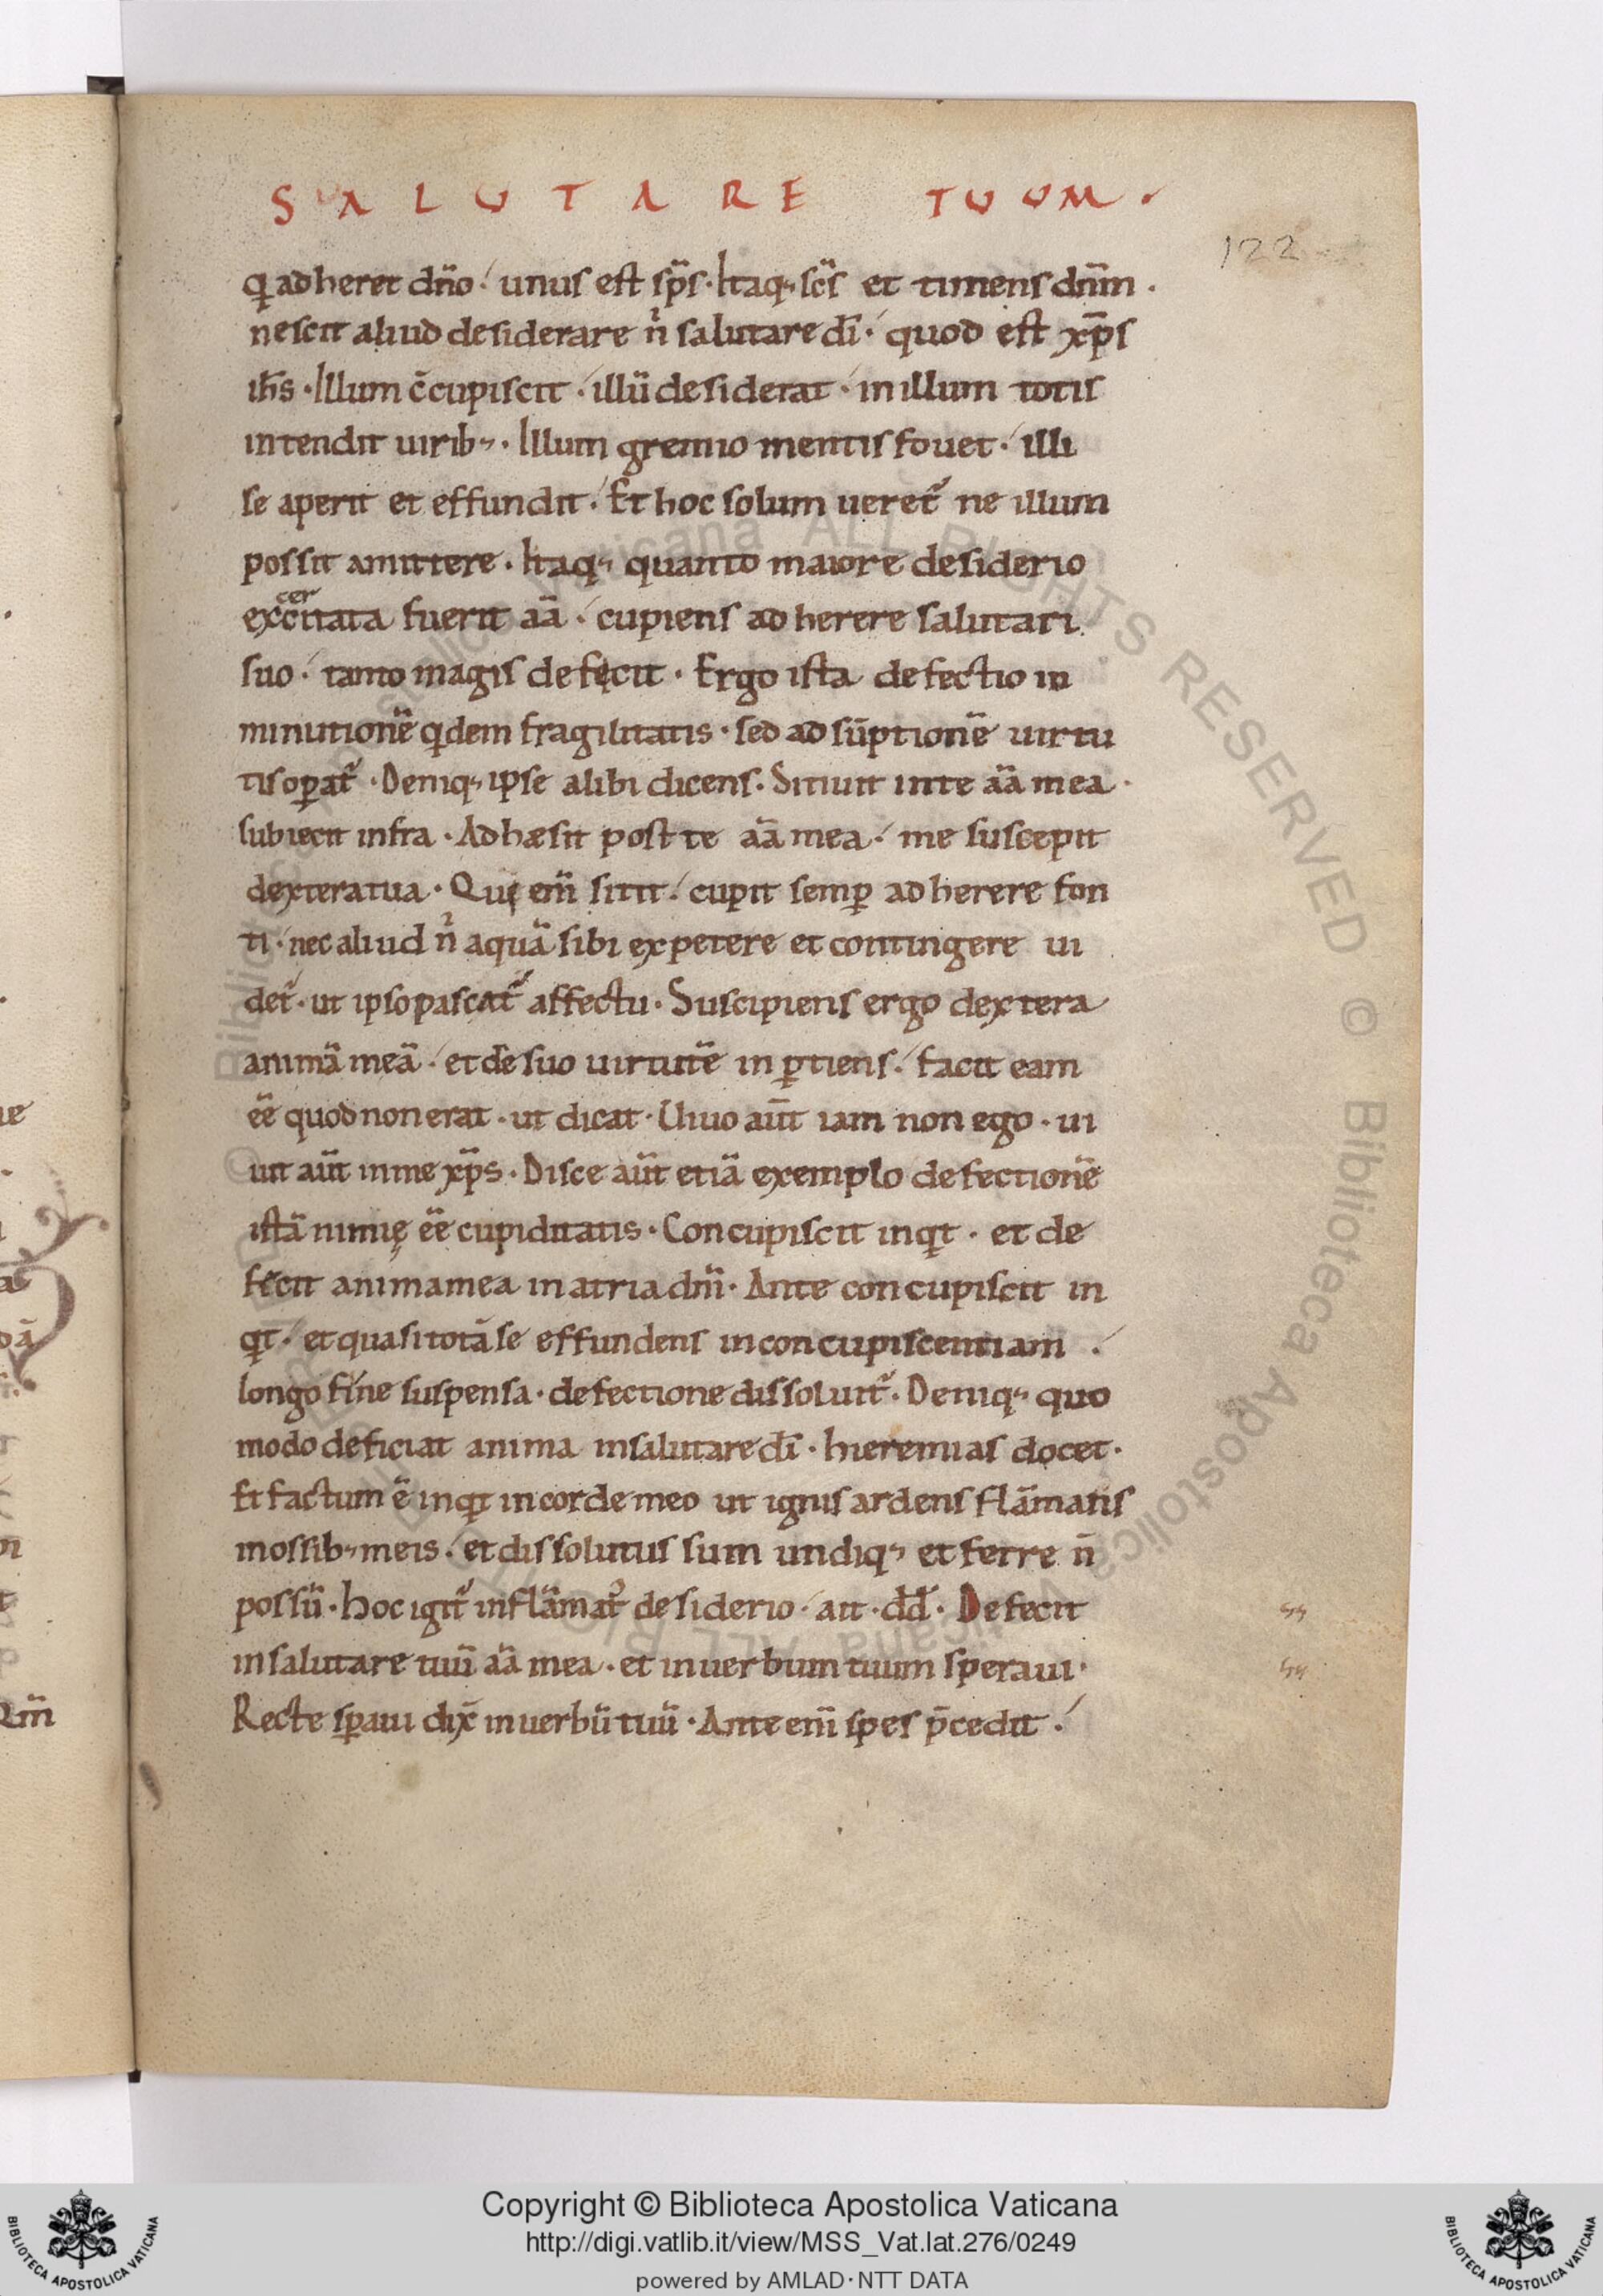 SALUTARE TUUM.
122
q̇ adheret dño. unus est sp̄s. Itaq; sc̄s et timens dn̄m.
nescit aliud desiderare ń salutare dī. quod est xp̄s
ih̄s. Illum c̄cupiscit. illū desiderat. in illum totis
intendit uirib;. Illum gremio mentis fouet. illi
se aperit et effundit. Et hoc solum ueret᷑ ne illum
possit amittere. Itaq; quanto maiore desiderio
cer
excitata fuerit aā. cupiens adherere salutari
suo. tanto magis defęcit. Ergo ista defectio in
minutionē qdem fragilitatis. sed adsūptionē uirtu
tis oꝑat᷑. Deniq; ipse alibi dicens. Sitiuit in te aā mea.
subiecit infra. Adhæsit post te aā mea. me suscepit
dextera tua. Qui em̄ sitit. cupit semꝑ adherere fon
ti. nec aliud ń aquā sibi expetere et contingere ui
det᷑. ut ipso pascat᷑ affectu. Suscipiens ergo dextera
animā meā. et de suo uirtutē inꝑtiens. facit eam
eē quod non erat. ut dicat. Uiuo aūt iam non ego. ui
uit aūt in me xp̄s. Disce aūt etiā exemplo defectionē
istā nimię eē cupiditatis. Concupiscit inqt. et de
fecit anima mea in atria dn̄i. Ante concupiscit in
qt. et quasi totā se effundens in concupiscentiam.
longo fine suspensa. defectione dissoluit᷑. Deniq; quo
modo deficiat anima in salutare dī. hieremias docet.
Et factum ē inqt in corde meo ut ignis ardens flāmatis
in ossib; meis. et dissolutus sum undiq; et ferre n̄
possū. hoc igit᷑ inflāmat᷑ desiderio. ait. dd̄. Defecit
in salutare tuū aā mea. et in uerbum tuum speraui.
Recte sꝑaui dix̄ in uerbū tuū. Ante em̄ spes p̄cedit.
Copyright © Biblioteca Apostolica Vaticana
http://digi.vatlib.it/view/MSS_Vat.lat.276/0249
powered by AMLAD·NTT DATA